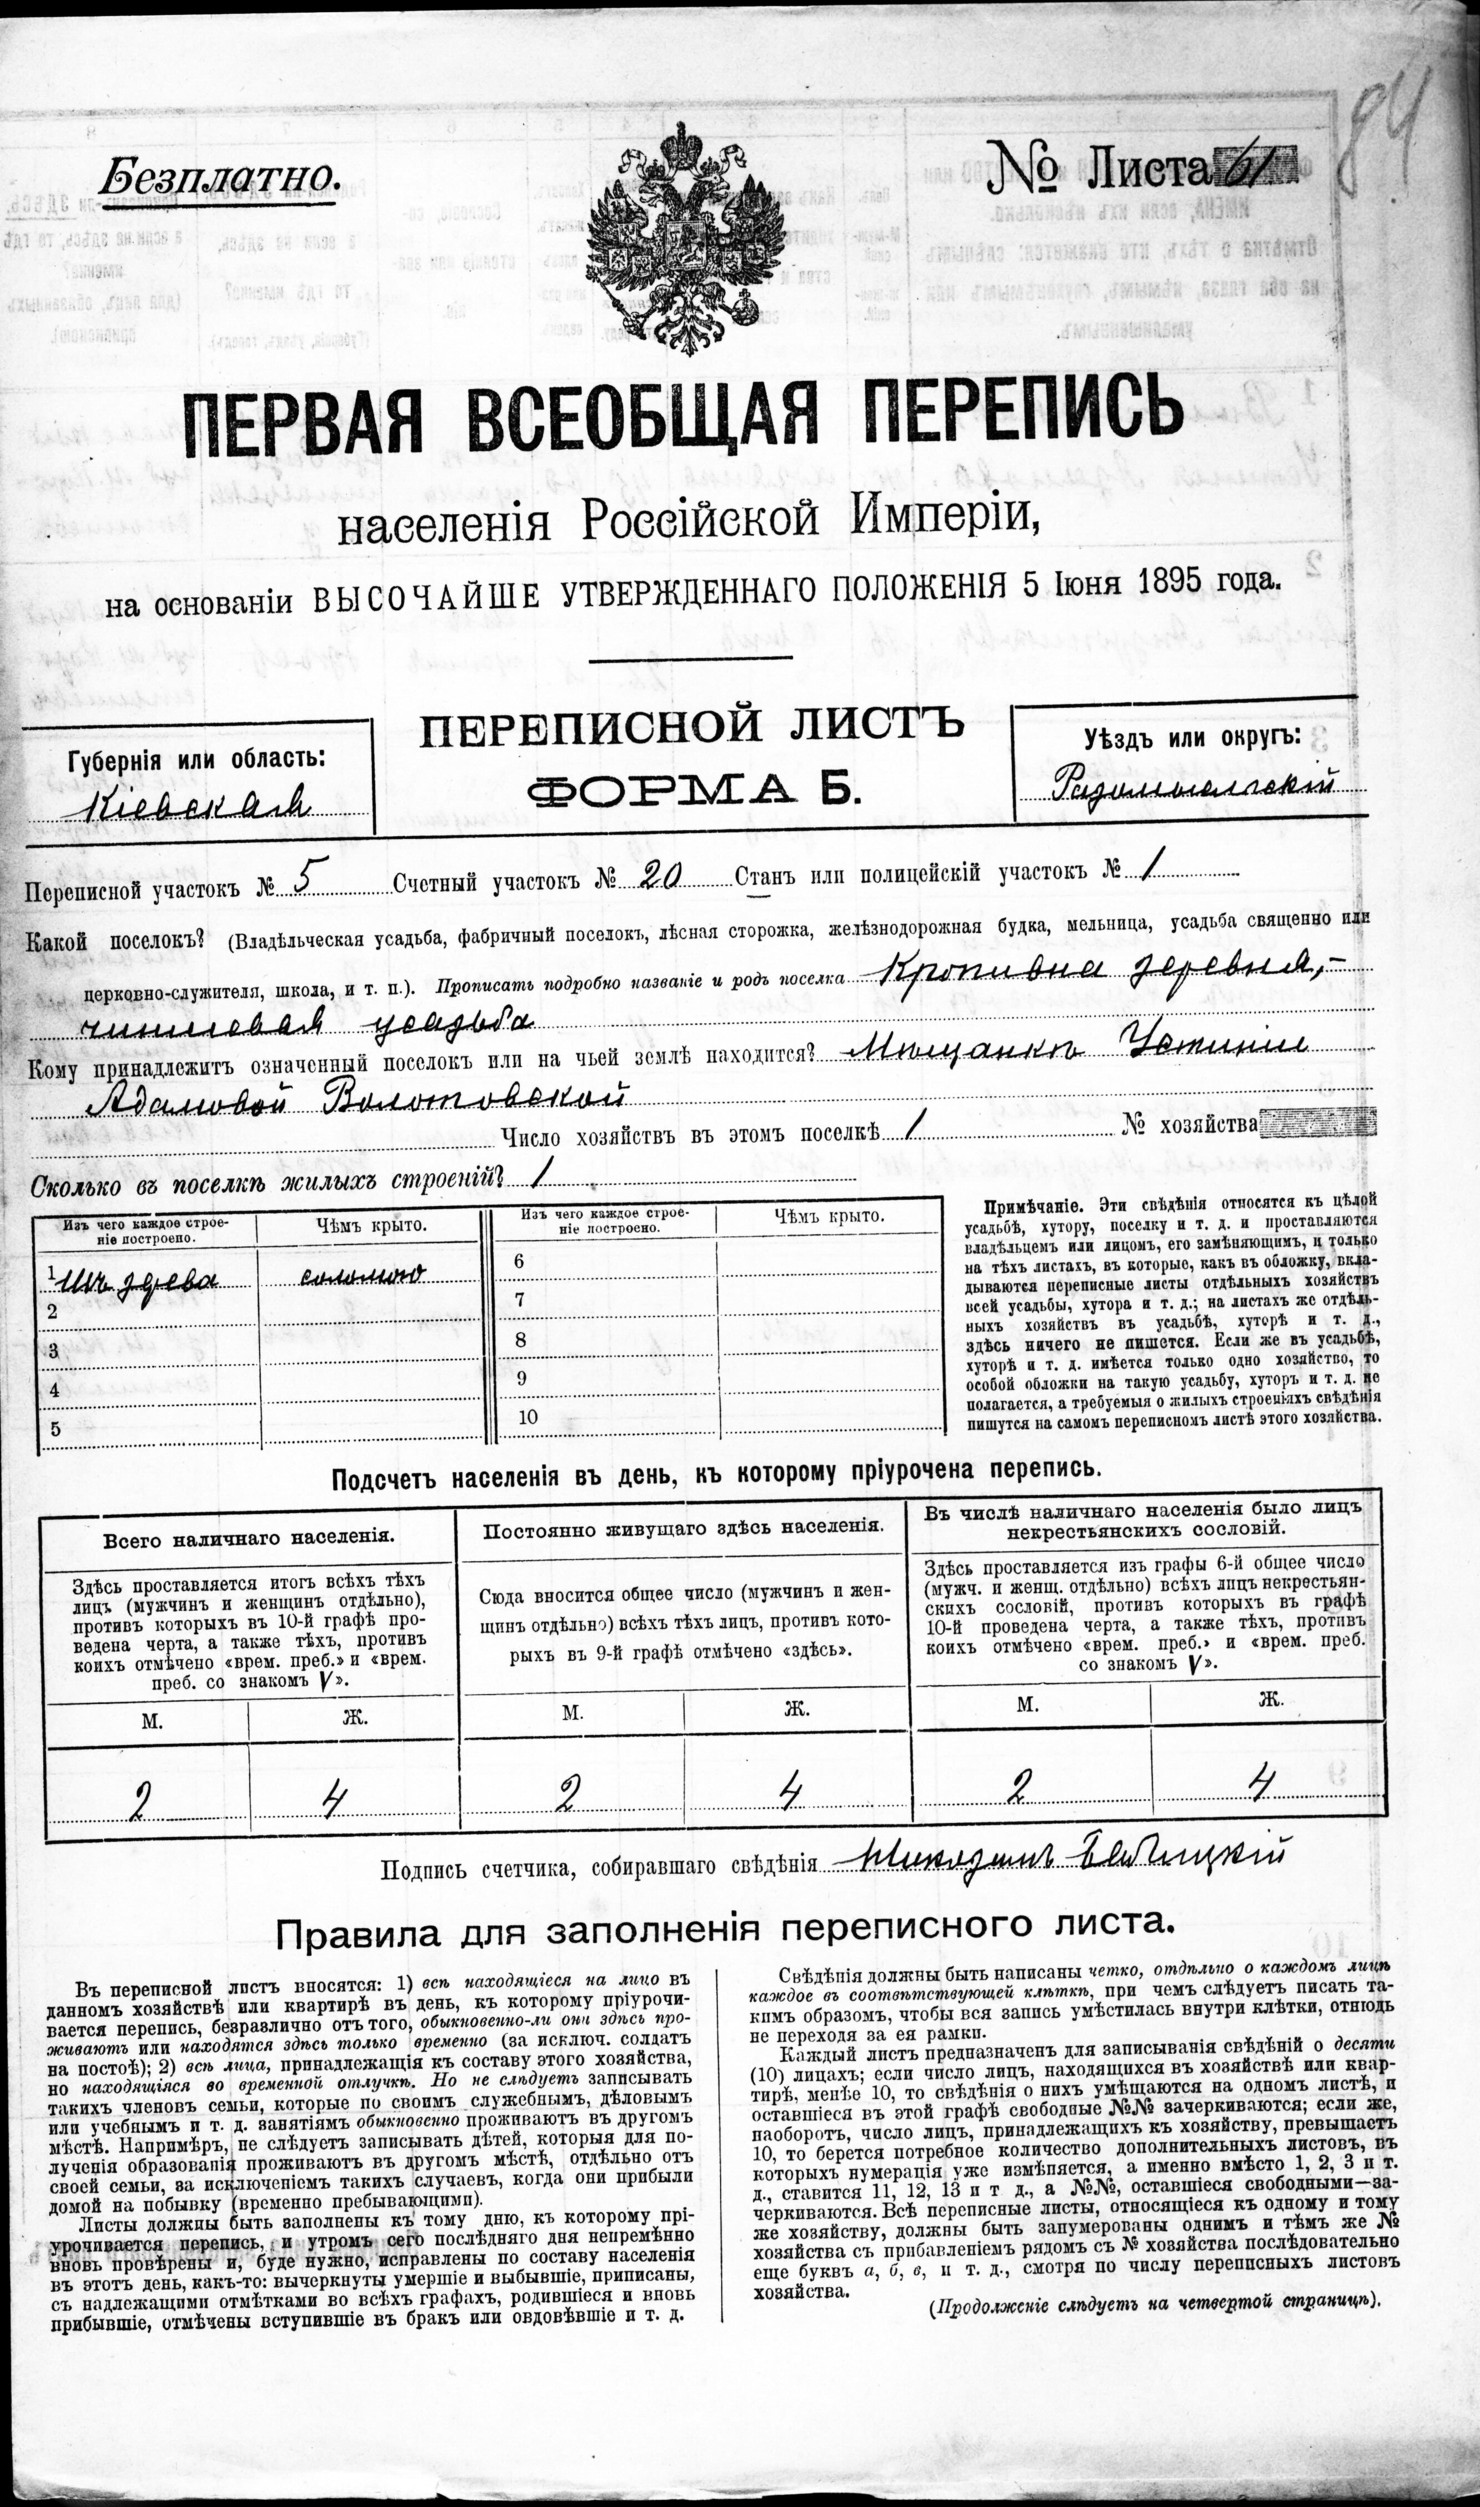 84
Безплатно.
№ Листа 61
ПЕРВАЯ ВСЕОБЩАЯ ПЕРЕПИСЬ
населенія Россійской Имперіи,
на основаніи ВЫСОЧАЙШЕ УТВЕРЖДЕННАГО ПОЛОЖЕНІЯ 5 Іюня 1895 года.
ПЕРЕПИСНОЙ ЛИСТЪ
ФОРМА Б.
Губернія или область:
Кіевская
Уѣздъ или округъ:
Радомысльскій
Переписной участокъ № 5 Счетный участокъ № 20 Станъ или полицейскій участокъ № 1
Какой поселокъ? (Владѣльческая усадьба, фабричный поселокъ, лѣсная сторожка, желѣзнодорожная будка, мельница, усадьба священно или
церковно-служителя, школа, и т. п.). Прописать подробно названіе и родъ поселка Кропивна деревня,-
чиншевая усадьба
Кому принадлежитъ означенный поселокъ или на чьей землѣ находится? Мѣщанкѣ Устиніи
Адамовой Волотовской
Число хозяйствъ въ этомъ поселкѣ 1 № хозяйства
Сколько въ поселкѣ жилыхъ строеній? 1
Изъ чего каждое строе-
ніе построено.
Чѣмъ крыто.
Изъ чего каждое строе-
ніе построено.
Чѣмъ крыто.
1 Изъ древа соломою
2
3
4
5
6
7
8
9
10
Примѣчаніе. Эти свѣдѣнія относятся къ цѣлой
усадьбѣ, хутору, поселку и т. д. и проставляются
владѣльцемъ или лицомъ, его замѣняющимъ, и только
на тѣхъ листахъ, въ которые, какъ въ обложку, вкла-
дываются переписные листы отдѣльныхъ хозяйствъ
всей усадьбы, хутора и т. д.; на листахъ же отдѣль-
ныхъ хозяйствъ въ усадьбѣ, хуторѣ и т. д.,
здѣсь ничего не пишется. Если же въ усадьбѣ,
хуторѣ и т. д. имѣется только одно хозяйство, то
особой обложки на такую усадьбу, хуторъ и т. д. не
полагается, а требуемыя о жилыхъ строеніяхъ свѣдѣнія
пишутся на самомъ переписномъ листѣ этого хозяйства.
Подсчетъ населенія въ день, къ которому пріурочена перепись.
Всего наличнаго населенія.
Здѣсь проставляется итогъ всѣхъ тѣхъ
лицъ (мужчинъ и женщинъ отдѣльно),
противъ которыхъ въ 10-й графѣ про-
ведена черта, а также тѣхъ, противъ
коихъ отмѣчено «врем. преб.» и «врем.
преб. со знакомъ V».
М. Ж.
2 4
Постоянно живущаго здѣсь населенія.
Сюда вносится общее число (мужчинъ и жен-
щинъ отдѣльно) всѣхъ тѣхъ лицъ, противъ кото-
рыхъ въ 9-й графѣ отмѣчено «здѣсь».
М. Ж.
2 4
Въ числѣ наличнаго населенія было лицъ
некрестьянскихъ сословій.
Здѣсь проставляется изъ графы 6-й общее число
(мужч. и женщ. отдѣльно) всѣхъ лицъ некрестьян-
скихъ сословій, противъ которыхъ въ графѣ
10-й проведена черта, а также тѣхъ, противъ
коихъ отмѣчено «врем. преб.» и «врем. преб.
со знакомъ V».
М. Ж.
2 4
Подпись счетчика, собиравшаго свѣдѣнія Никодимъ
Правила для заполненія переписного листа.
Въ переписной листъ вносятся: 1) всѣ находящіеся на лицо въ
данномъ хозяйствѣ или квартирѣ въ день, къ которому пріурочи-
вается перепись, безразлично отъ того, обыкновенно-ли они здѣсь про-
живаютъ или находятся здѣсь только временно (за исключ. солдатъ
на постоѣ); 2) всѣ лица, принадлежащія къ составу этого хозяйства,
но находящіяся во временной отлучкѣ. Но не слѣдуетъ записывать
такихъ членовъ семьи, которые по своимъ служебнымъ, дѣловымъ
или учебнымъ и т. д. занятіямъ обыкновенно проживаютъ въ другомъ
мѣстѣ. Напримѣръ, не слѣдуетъ записывать дѣтей, которыя для по-
лученія образованія проживаютъ въ другомъ мѣстѣ, отдѣльно отъ
своей семьи, за исключеніемъ такихъ случаевъ, когда они прибыли
домой на побывку (временно пребывающими).
Листы должны быть заполнены къ тому дню, къ которому прі-
урочивается перепись, и утромъ сего послѣдняго дня непремѣнно
вновь провѣрены и, буде нужно, исправлены по составу населенія
въ этотъ день, какъ-то: вычеркнуты умершіе и выбывшіе, приписаны,
съ надлежащими отмѣтками во всѣхъ графахъ, родившіеся и вновь
прибывшіе, отмѣчены вступившіе въ бракъ или овдовѣвшіе и т. д.
Свѣдѣнія должны быть написаны четко, отдѣльно о каждомъ лицѣ
каждое въ соотвѣтствующей клѣткѣ, при чемъ слѣдуетъ писать та-
кимъ образомъ, чтобы вся запись умѣстилась внутри клѣтки, отнюдь
не переходя за ея рамки.
Каждый листъ предназначенъ для записыванія свѣдѣній о десяти
(10) лицахъ; если число лицъ, находящихся въ хозяйствѣ или квар-
тирѣ, менѣе 10, то свѣдѣнія о нихъ умѣщаются на одномъ листѣ, и
оставшіеся въ этой графѣ свободные №№ зачеркиваются; если же,
наоборотъ, число лицъ, принадлежащихъ къ хозяйству, превышаетъ
10, то берется потребное количество дополнительныхъ листовъ, въ
которыхъ нумерація уже измѣняется, а именно вмѣсто 1, 2, 3 и т.
д., ставится 11, 12, 13 и т д., а №№, оставшіеся свободными—за-
черкиваются. Всѣ переписные листы, относящіеся къ одному и тому
же хозяйству, должны быть занумерованы однимъ и тѣмъ же №
хозяйства съ прибавленіемъ рядомъ съ № хозяйства послѣдовательно
еще буквъ а, б, в, и т. д., смотря по числу переписныхъ листовъ
хозяйства.
(Продолженіе слѣдуетъ на четвертой страницѣ).